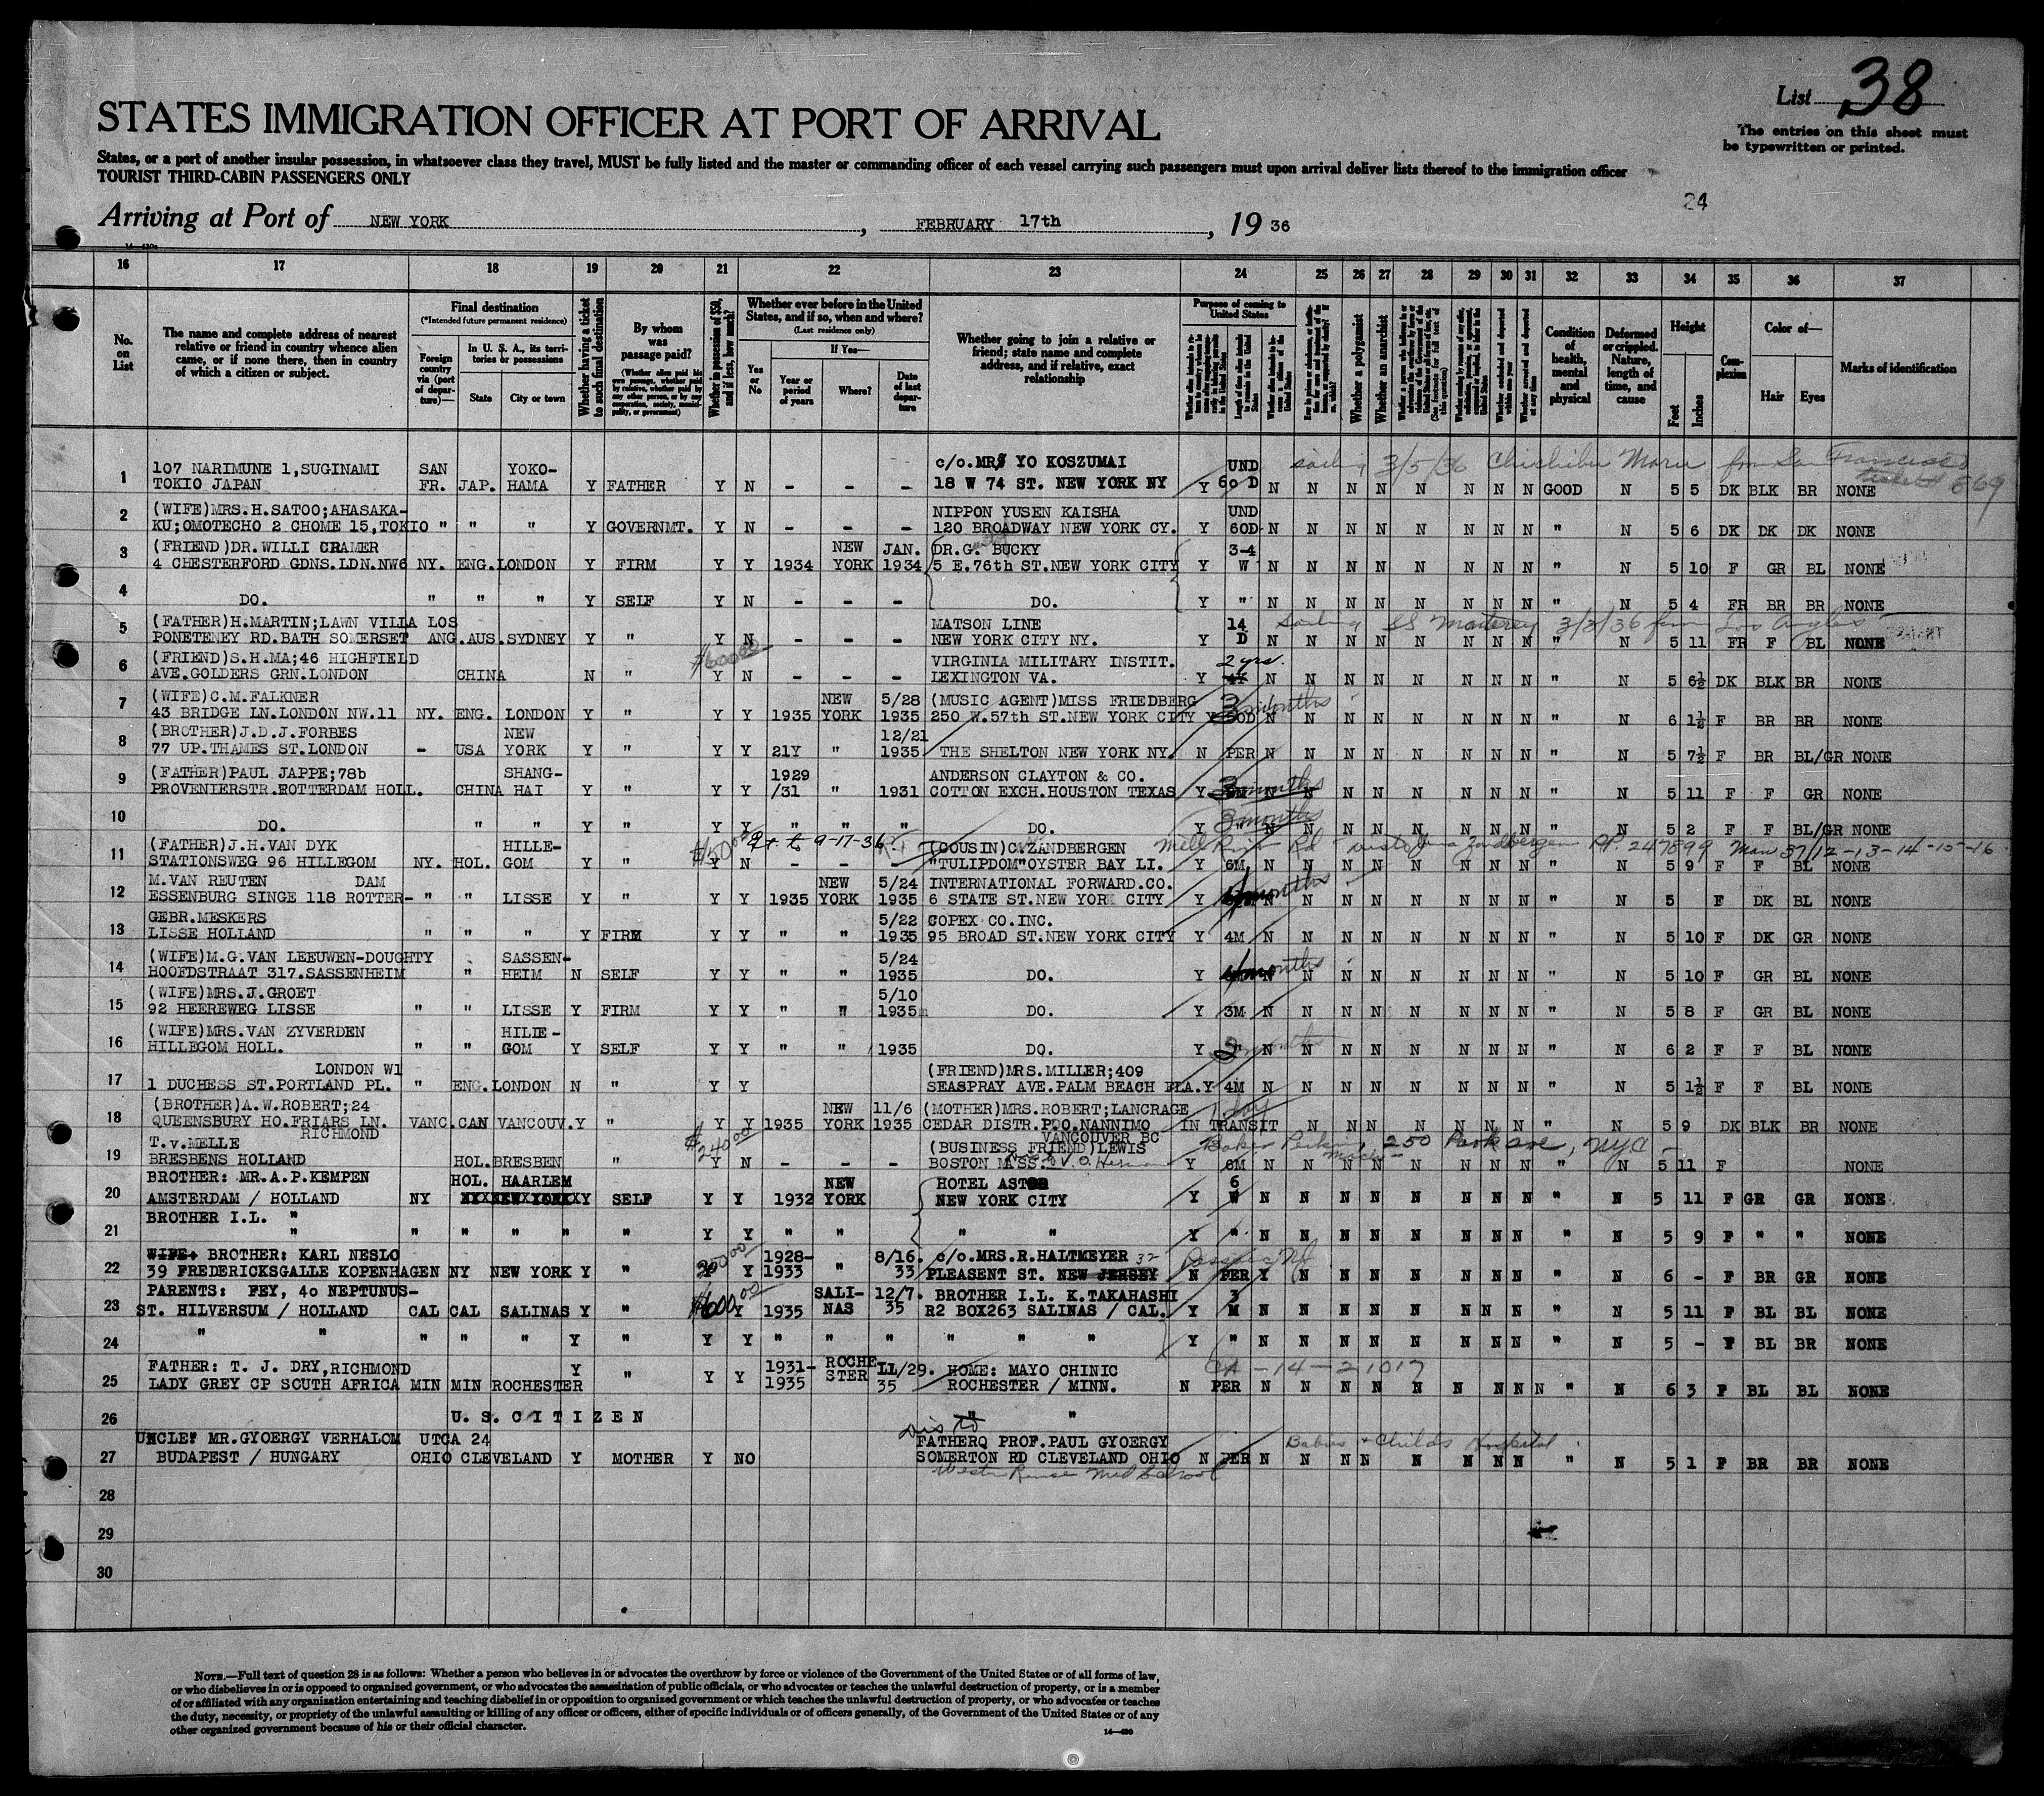 List 38
The entries on this sheet must
be typewritten or printed.
STATES IMMIGRATION OFFICER AT PORT OF ARRIVAL
States, or a port of another insular possession, in whatsoever class they travel, MUST be fully listed and the master or commanding officer of each vessel carrying such passengers must upon arrival deliver lists thereof to the immigration officer
TOURIST THIRD-CABIN PASSENGERS ONLY
24
Arriving at Port of NEW YORK, FEBRUARY 17th, 19 36
16 17 18 19 20 21 22 23 24 25 26 27 28 29 30 31 32 33 34 35 36 37
No. on List
The name and complete address of nearest relative or friend in country whence alien came, or if none there, then in country of which a citizen or subject.
Final destination
(*Intended future permanent residence)
Foreign country via (port of departure)—
In U. S. A., its territories or possessions
State
City or town
Whether having a ticket to such final destination
By whom was passage paid?
(Whether alien paid his own passage, whether paid by relative, whether paid by any other person, or by any corporation, society, municipality, or government)
Whether in possession of $50, and if less, how much?
Whether ever before in the United States, and if so, when and where?
(Last residence only)
Yes or No
If Yes—
Year or period of years
Where?
Date of last departure
Whether going to join a relative or friend; state name and complete address, and if relative, exact relationship
Purpose of coming to United States
Whether a polygamist
Whether an anarchist
Condition of health, mental and physical
Deformed or crippled. Nature, length of time, and cause
Height
Feet
Inches
Complexion
Color of—
Hair
Eyes
Marks of identification
1 107 NARIMUNE 1,SUGINAMI SAN YOKO- c/o.MRS YO KOSZUMAI UND sailing 3/5/36 Chichibu Maru from San Francisco
TOKIO JAPAN FR. JAP. HAMA Y FATHER Y N - - - 18 W 74 ST. NEW YORK NY Y 60 D N N N N N N N N GOOD N 5 5 DK BLK BR NONE
2 (WIFE)MRS.H.SATOO;AHASAKA- NIPPON YUSEN KAISHA UND
KU;OMOTECHO 2 CHOME 15,TOKIO " " " Y GOVERNMT. Y N - - - 120 BROADWAY NEW YORK CY. Y 60D N N N N N N N N " N 5 6 DK DK DK NONE
3 (FRIEND)DR.WILLI CRAMER NEW JAN. DR.G. BUCKY 3-4
4 CHESTERFORD GDNS.LDN.NW6 NY. ENG.LONDON Y FIRM Y Y 1934 YORK 1934 5 E.76th ST.NEW YORK CITY Y W N N N N N N N N " N 5 10 F GR BL NONE
4 DO. " " " Y SELF Y N - - - DO. Y " N N N N N N N N " N 5 4 FR BR BR NONE
5 (FATHER)H.MARTIN;LAWN VILLA LOS MATSON LINE 14 Sailing SS Monterey 3/2/36 from Los Angeles
PONETENEY RD.BATH SOMERSET ANG.AUS.SYDNEY Y " Y N NEW YORK CITY NY. Y D N N N N N N N N " N 5 11 FR F BL NONE
6 (FRIEND)S.H.MA;46 HIGHFIELD $600.00 VIRGINIA MILITARY INSTIT. 2 yrs.
AVE.GOLDERS GRN.LONDON CHINA N " Y N - - - LEXINGTON VA. Y 4Y N N N N N N N N " N 5 6½ DK BLK BR NONE
7 (WIFE)C.M.FALKNER NEW 5/28 (MUSIC AGENT)MISS FRIEDBERG 3 months
43 BRIDGE LN.LONDON NW.11 NY. ENG. LONDON Y " Y Y 1935 YORK 1935 250 W.57th ST.NEW YORK CITY Y N N N N N N N N " N 6 1½ F BR BR NONE
8 (BROTHER)J.D.J.FORBES NEW 12/21
77 UP.THAMES ST.LONDON - USA YORK Y " Y Y 21Y " 1935 THE SHELTON NEW YORK NY. N PER N N N N N N N N " N 5 7½ F BR BL/GR NONE
9 (FATHER)PAUL JAPPE;78b SHANG- 1929 ANDERSON CLAYTON & CO. 3 months
PROVENIERSTR.ROTTERDAM HOLL. CHINA HAI Y " Y Y /31 " 1931 COTTON EXCH.HOUSTON TEXAS Y N N N N N N N N " N 5 11 F F GR NONE
10 3 months
DO. " " Y " Y Y " " " DO. Y " N N N N N N N N " N 5 2 F F BL/GR NONE
11 (FATHER)J.H.VAN DYK HILLE- 9-17-36 (COUSIN)C.ZANDBERGEN Mill River Rd
STATIONSWEG 96 HILLEGOM NY. HOL. GOM Y " Y N - - "TULIPDOM"OYSTER BAY LI. Y 6M N N N N N N N N " N 5 9 F F BL NONE
12 M.VAN REUTEN DAM NEW 5/24 INTERNATIONAL FORWARD.CO. months
ESSENBURG SINGE 118 ROTTER- " " LISSE Y " Y Y 1935 YORK 1935 6 STATE ST.NEW YORK CITY Y N N N N N N N N " N 5 F DK BL NONE
13 GEBR.MESKERS 5/22 COPEX CO.INC.
LISSE HOLLAND " " " Y FIRM Y Y " " 1935 95 BROAD ST.NEW YORK CITY Y 4M N N N N N N N N " N 5 10 F DK GR NONE
14 (WIFE)M.G.VAN LEEUWEN-DOUGHTY SASSEN- 5/24 months
HOOFDSTRAAT 317.SASSENHEIM " HEIM N SELF Y Y " " 1935 DO. Y N N N N N N N N " N 5 10 F GR BL NONE
15 (WIFE)MRS.J.GROET 5/10
92 HEEREWEG LISSE " " LISSE Y FIRM Y Y " " 1935 DO. Y 3M N N N N N N N N " N 5 8 F GR BL NONE
16 (WIFE)MRS.VAN ZYVERDEN HILIE- 2 months
HILLEGOM HOLL. " " GOM Y SELF Y Y " " 1935 DO. Y " N N N N N N N N " N 6 2 F F BL NONE
17 LONDON W1 (FRIEND)MRS.MILLER;409
1 DUCHESS ST.PORTLAND PL. " ENG.LONDON N " Y Y SEASPRAY AVE.PALM BEACH FLA.Y 4M N N N N N N N N " N 5 1½ F F BL NONE
18 (BROTHER)A.W.ROBERT;24 NEW 11/6 (MOTHER)MRS.ROBERT;LANCRAGE 1 day
QUEENSBURY HO.FRIARS LN. VANC.CAN VANCOUV.Y " Y Y 1935 YORK 1935 CEDAR DISTR.P.O.NANNIMO IN TRANSIT N N N N N N N " N 5 9 DK BLK BR NONE
RICHMOND VANCOUVER BC
19 T.v.MELLE $240.00 (BUSINESS FRIEND)LEWIS Baker Perkins, 250 Park ave, NYC
BRESBENS HOLLAND HOL.BRESBEN " Y N - - - BOSTON MASS. Y 6M N N N N N N N N " N 5 11 F NONE
20 BROTHER: MR.A.P.KEMPEN HOL. HAARLEM NEW HOTEL ASTOR 6
AMSTERDAM / HOLLAND NY Y SELF Y Y 1932 YORK NEW YORK CITY Y W N N N N N N N N " N 5 11 F GR GR NONE
21 BROTHER I.L. "
" " " " " " " Y Y " " " " Y " N N N N N N N N " N 5 9 F " " NONE
22 WIFE: BROTHER: KARL NESLO 1928- 8/16. c/o.MRS.R.HALTMEYER 32 Passaic NJ
39 FREDERICKSGALLE KOPENHAGEN NY NEW YORK Y " Y 1933 " 33 PLEASENT ST. NEW JERSEY N PER Y N N N N N N N " N 6 - F BR GR NONE
23 PARENTS: FEY, 40 NEPTUNUS- $600.00 SALI- 12/7. BROTHER I.L. K.TAKAHASHI 3
ST. HILVERSUM / HOLLAND CAL CAL SALINAS Y " Y 1935 NAS 35 R2 BOX263 SALINAS / CAL. Y M N N N N N N N N " N 5 11 F BL BL NONE
24 " " " " " Y " Y Y " " " " " " Y " N N N N N N N N " N 5 - F BL BR NONE
25 FATHER: T. J. DRY,RICHMOND Y 1931- ROCHE 11/29. HOME: MAYO CHINIC
LADY GREY CP SOUTH AFRICA MIN MIN ROCHESTER " Y Y 1935 STER 35 ROCHESTER / MINN. N PER N N N N N N N N N " N 6 3 F BL BL NONE
26 U. S. C I T I Z E N " "
27 UNCLE: MR.GYOERGY VERHALOM UTCA 24 Dis to FATHERQ PROF.PAUL GYOERGY Babies + Childs Hospital
BUDAPEST / HUNGARY OHIO CLEVELAND Y MOTHER Y NO SOMERTON RD CLEVELAND OHIO N PER N N N N N N N " N 5 1 F BR BR NONE
Western Reserve Med School
28
29
30
NOTE.—Full text of question 28 is as follows: Whether a person who believes in or advocates the overthrow by force or violence of the Government of the United States or of all forms of law,
or who disbelieves in or is opposed to organized government, or who advocates the assassination of public officials, or who advocates or teaches the unlawful destruction of property, or is a member
of or affiliated with any organization entertaining and teaching disbelief in or opposition to organized government or which teaches the unlawful destruction of property, or who advocates or teaches
the duty, necessity, or propriety of the unlawful assaulting or killing of any officer or officers, either of specific individuals or of officers generally, of the Government of the United States or of any
other organized government because of his or their official character.